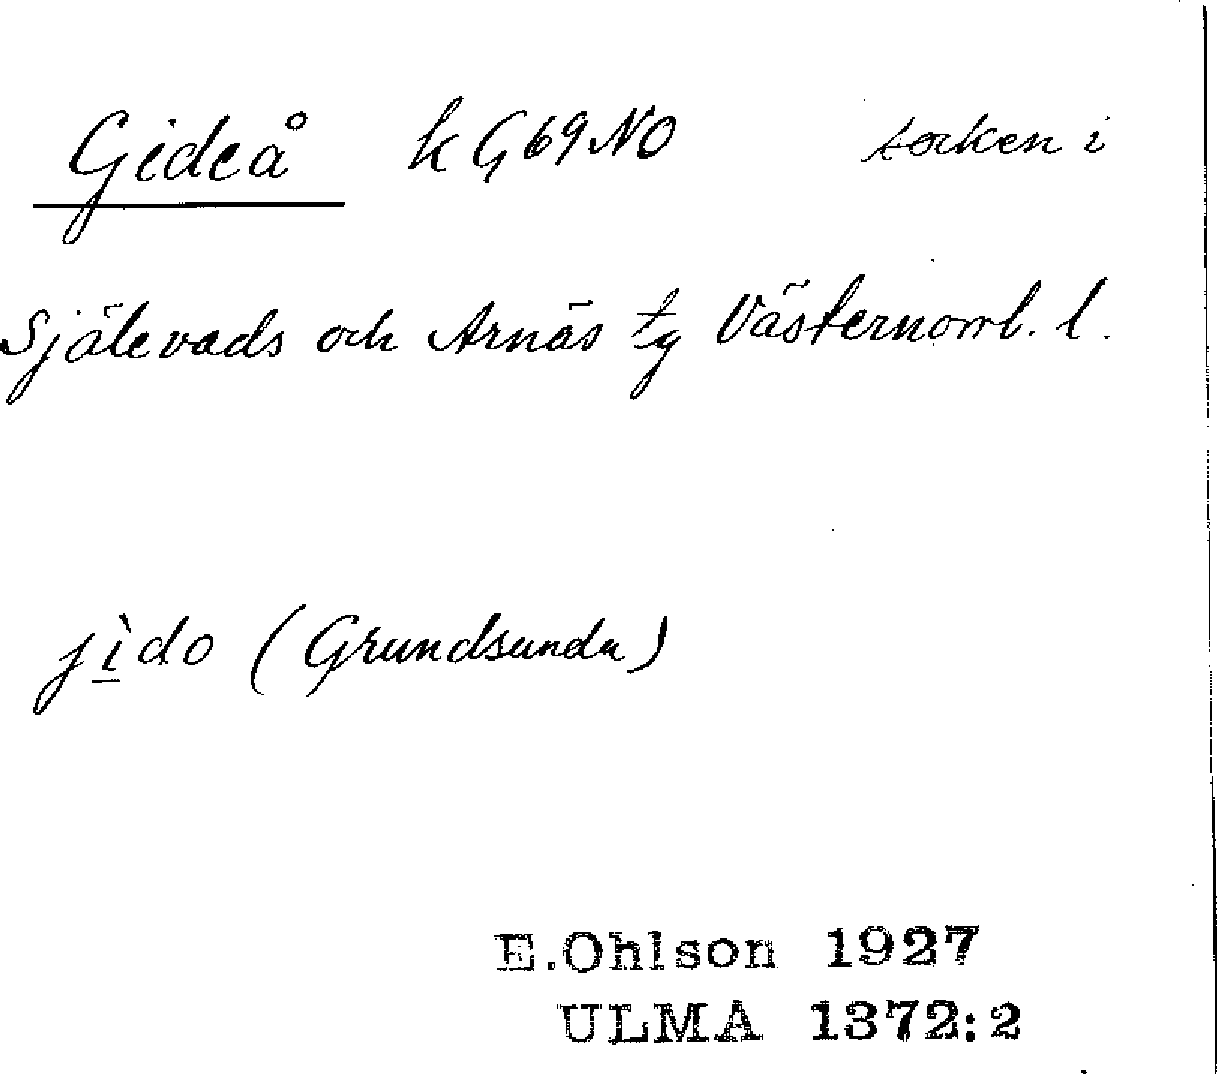 Gideå k G69NO socken i
Själevads och Arnäs tg Västernorrl. l.
jìdo (Grundsunda)
E.Ohlson 1927
ULMA 1372:2